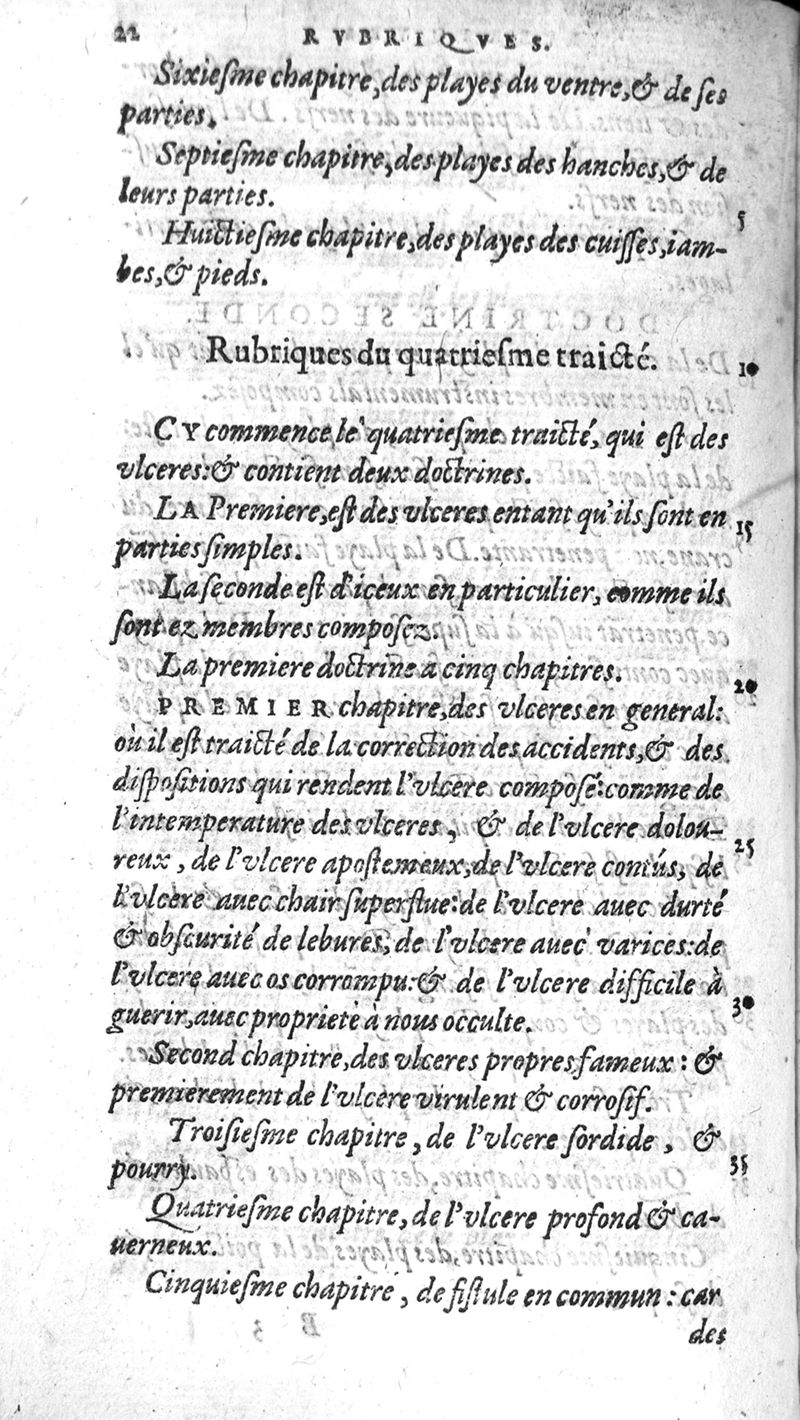 22 RVBRIQVES.
Sixieſme chapitre, des playes du ventre, & de ſes
parties.
Septieſme chapitre, des playes des hanches, & de
leurs parties.
5
Huictieſme chapitre, des playes des cuiſſes, iam-
bes, & pieds.
Rubriques du quatrieſme traicté.
10
CY commence le quatrieſme traicté, qui eſt des
vlceres: & contient deux doctrines.
LA Premiere, eſt des vlceres entant qu'ils ſont en
15
parties ſimples.
La ſeconde eſt d'iceux en particulier, comme ils
ſont ez membres compoſez.
La premiere doctrine a cinq chapitres.
20
PREMIER chapitre, des vlceres en general:
où il eſt traicté de la correction des accidents, & des
diſpoſitions qui rendent l'vlcere compoſé: comme de
l'intemperature des vlceres, & de l'vlcere dolou-
25
reux, de l'vlcere apoſtemeux, de l'vlcere contús, de
l'vlcere auec chair ſuperflue: de l'vlcere auec durté
& obſcurité de lebures, de l'vlcere auec varices: de
l'vlcere auec os corrompu: & de l'vlcere difficile à
30
guerir, auec proprieté à nous occulte.
Second chapitre, des vlceres propres fameux: &
premierement de l'vlcere virulent & corroſif.
Troiſieſme chapitre, de l'vlcere ſordide, &
35
pourry.
Quatrieſme chapitre, de l'vlcere profond & ca-
uerneux.
Cinquieſme chapitre, de fiſtule en commun: car
des